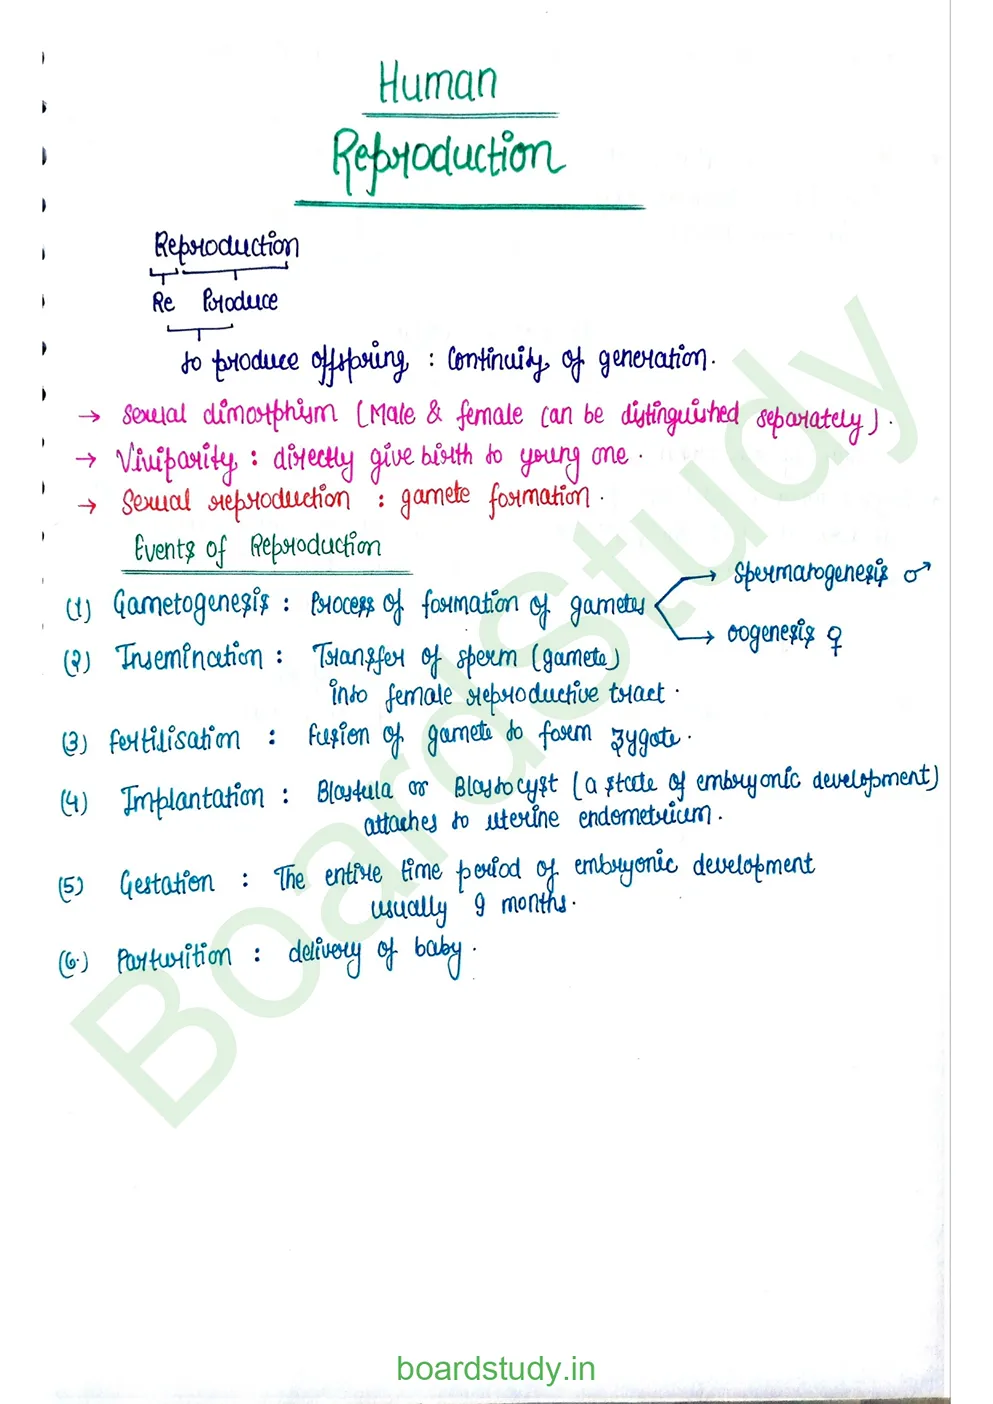 Human
Reproduction
Reproduction
Re Produce
to produce offspring : Continuity of generation.
→ Sexual dimorphism (Male & female can be distinguished separately).
→ Viviparity : directly give birth to young one.
→ Sexual reproduction : gamete formation.
Events of Reproduction
(1) Gametogenesis : Process of formation of gametes → Spermatogenesis ♂
→ oogenesis ♀
(2) Insemination : Transfer of sperm (gamete)
into female reproductive tract.
(3) Fertilisation : Fusion of gamete to form zygote.
(4) Implantation : Blastula or Blastocyst (a state of embryonic development)
attaches to uterine endometrium.
(5) Gestation : The entire time period of embryonic development
usually 9 months.
(6.) Parturition : delivery of baby.
Boardstudy
boardstudy.in